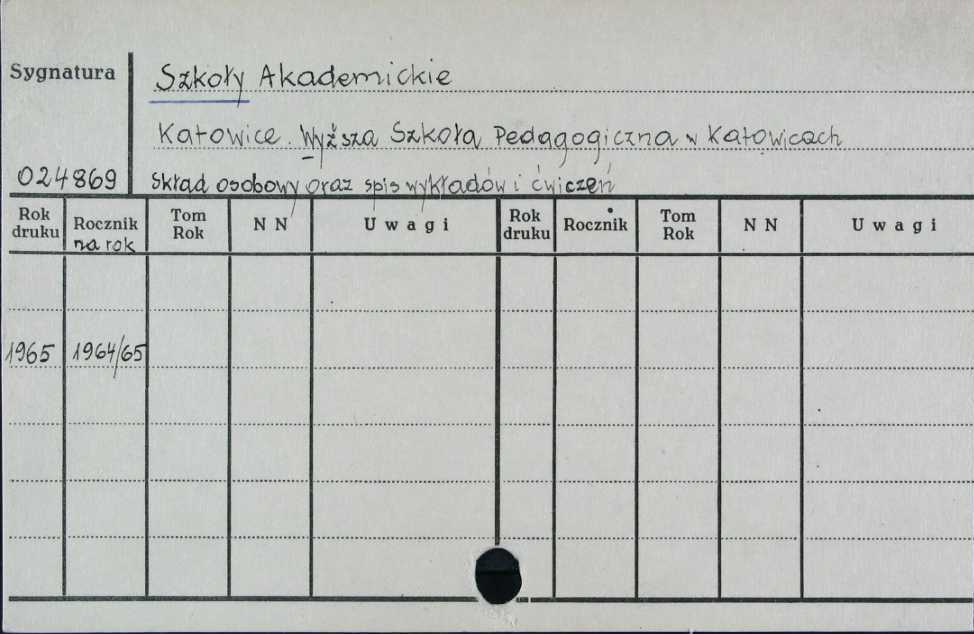 Sygnatura
Szkoły Akademickie
Katowice. Wyższa Szkoła Pedagogiczna w Katowicach
024869
Skład osobowy oraz spis wykładów i ćwiczeń
Rok druku
Rocznik na rok
Tom Rok
N N
Uwagi
Rok druku
Rocznik
Tom Rok
N N
Uwagi
1965 1964/65